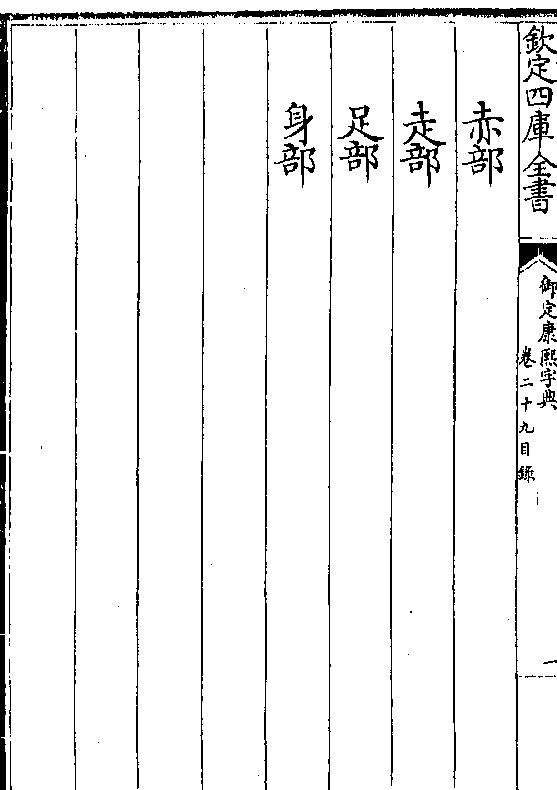 欽定四庫全書
御定康熙字典
卷二十九目錄
一
赤部
走部
足部
身部